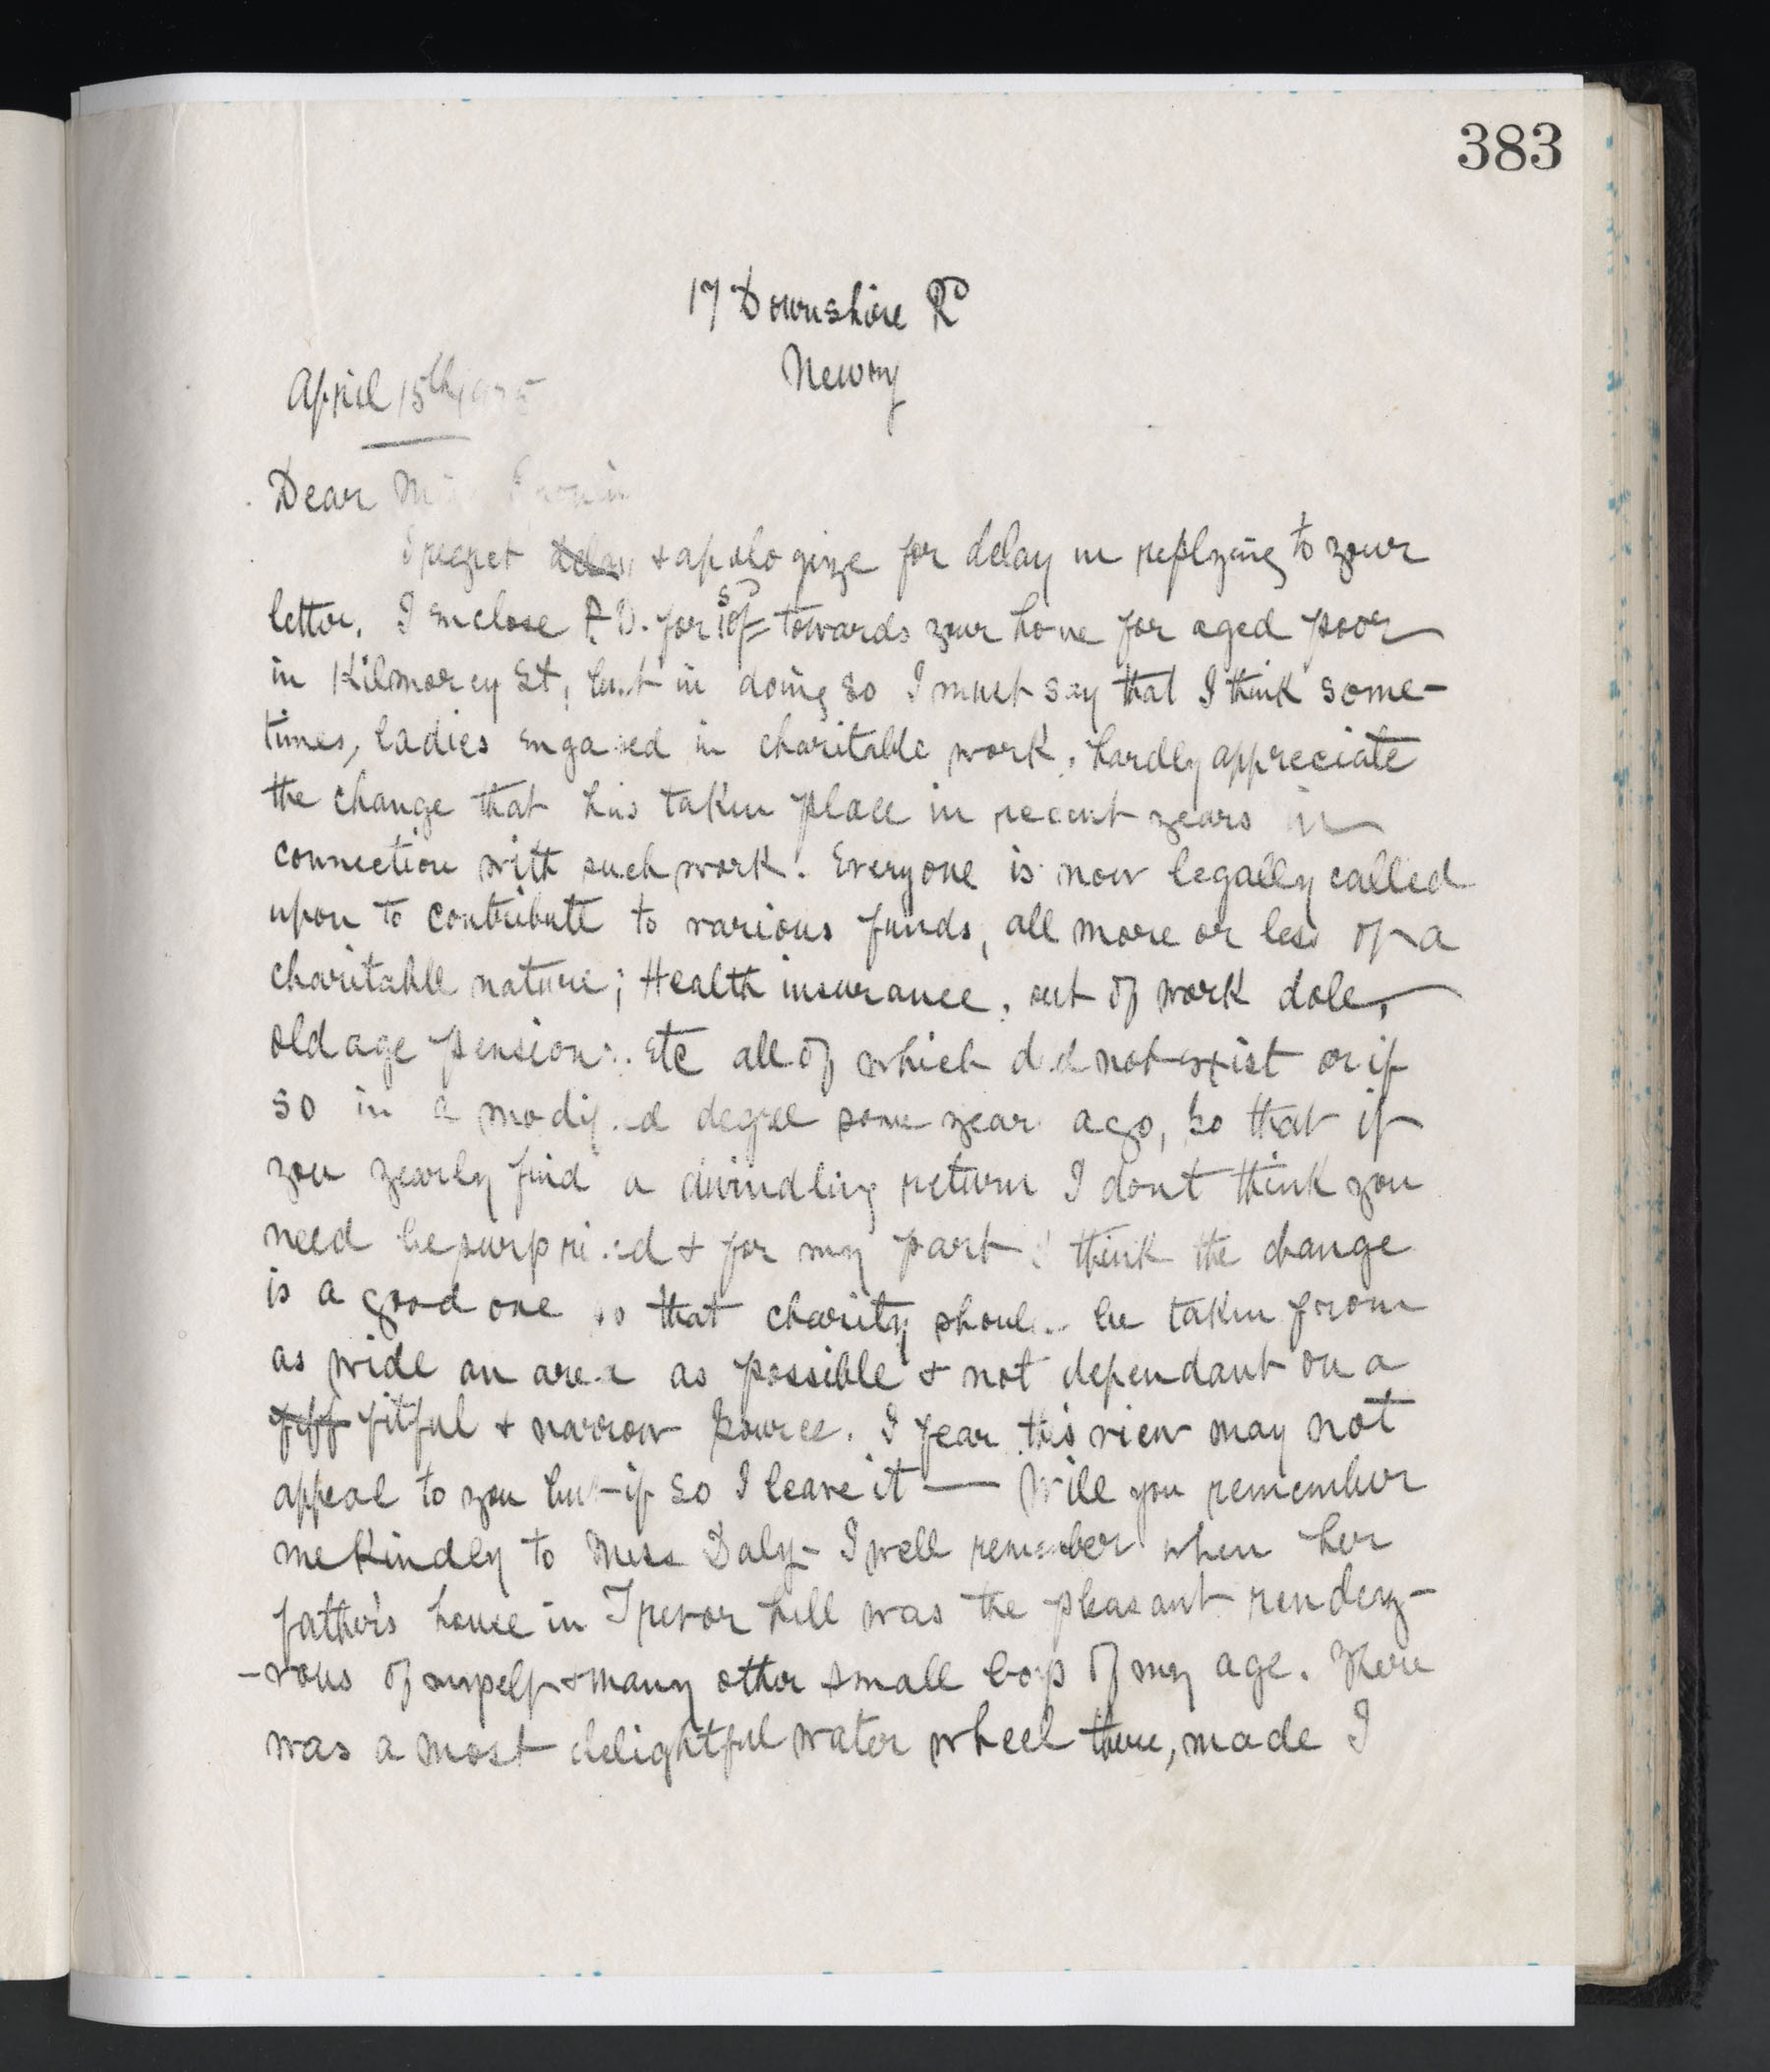 383
17 Downshire Rd
Newry
April 15th
Dear
I regret delay & apologize for delay in replying to your
letter. I enclose P.O. for 10/= towards your home for aged poor
in Kilmorey St, but in doing so I must say that I think some-
times, ladies engaged in charitable work, hardly appreciate
the change that has taken place in recent years in
connection with such work. Everyone is now legally called
upon to contribute to various funds, all more or less of a
charitable nature; Health insurance, out of work dole,
old age pensions. etc all of which did not exist or if
so in a modified degree some year ago, so that if
you yearly find a dwindling return I dont think you
need be surprised & for my part I think the change
is a good one so that charity should be taken from
as wide an area as possible & not dependant on a
fitful & narrow source. I fear this view may not
appeal to you but if so I leave it — Will you remember
me kindly to Miss Daly - I well remember when her
father's house in Trevor hill was the pleasant rendez-
-vous of myself & many other small boys of my age. There
was a most delightful water wheel there, made I